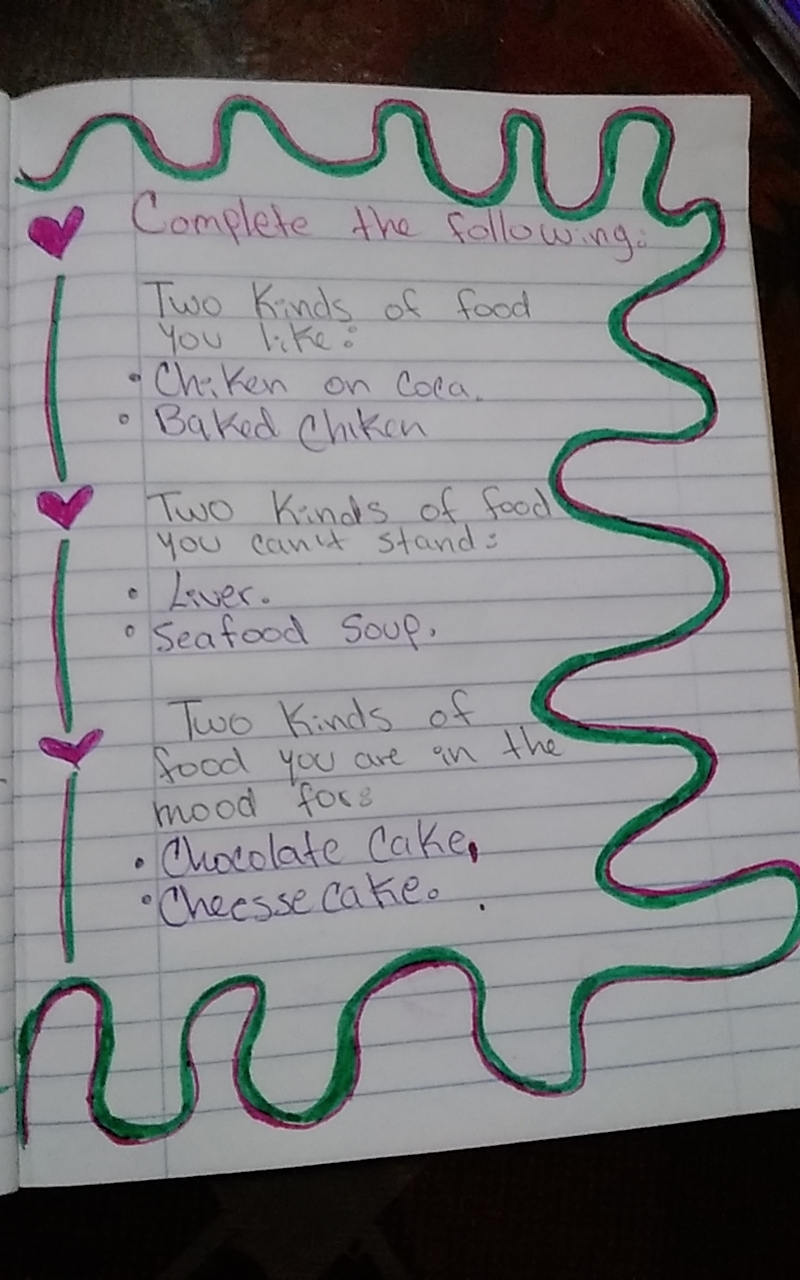 Complete the following:
Two Kinds of food
you like:
• Chiken on Coca.
• Baked Chiken
Two Kinds of food
you can't stand:
• Liver.
• Seafood Soup.
Two Kinds of
food you are in the
mood for:
• Chocolate Cake.
• Cheesse cake.